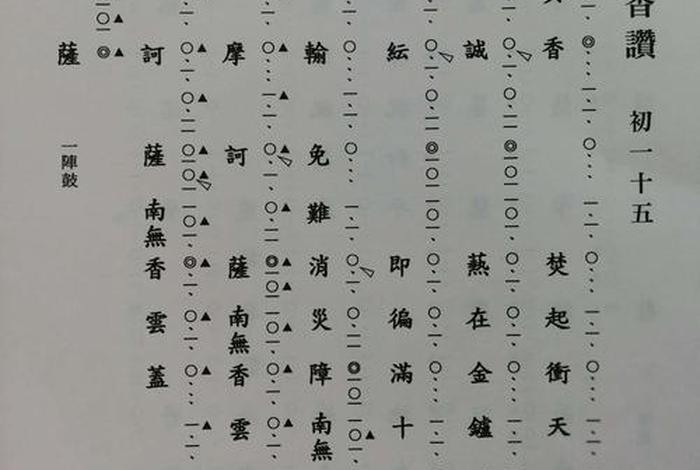 香讚 初一十五
香 焚起衝天
誠 爇在金鑪
紜 即徧滿十
輸 免難消災障南無
摩訶 薩南無香雲
訶薩南無香雲蓋
薩 一陣鼓